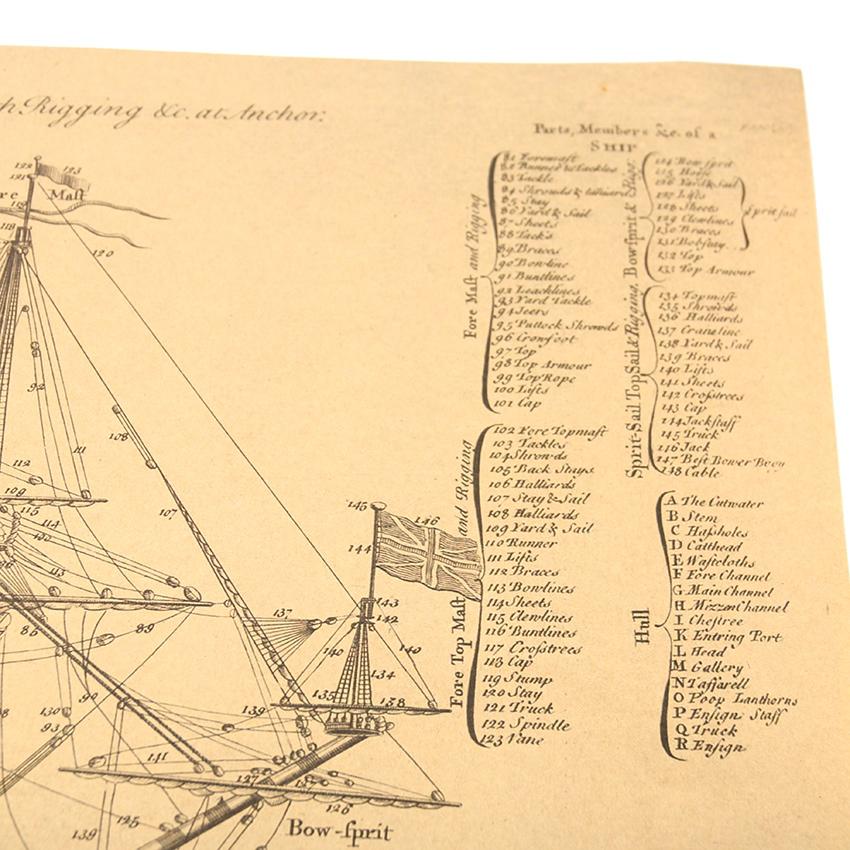 h Rigging &c. at Anchor.
Parts, Members &c. of a
SHIP
Fore Mast and Rigging
81 Foremast
82 Runner & Tackles
83 Tackle
84 Shrouds & Laniards
85 Stay
86 Yard & Sail
87 Sheets
88 Tacks
89 Braces
90 Bowline
91 Buntlines
92 Leachlines
93 Yard Tackle
94 Jeers
95 Puttock Shrowds
96 Crowfoot
97 Top
98 Top Armour
99 Top Rope
100 Lifts
101 Cap
Fore Top Mast and Rigging
102 Fore Topmast
103 Tackles
104 Shrowds
105 Back Stays
106 Halliards
107 Stay & Sail
108 Halliards
109 Yard & Sail
110 Runner
111 Lifts
112 Braces
113 Bowlines
114 Sheets
115 Clewlines
116 Buntlines
117 Crosstrees
118 Cap
119 Stump
120 Stay
121 Truck
122 Spindle
123 Vane
Bowsprit & Rigg.
124 Bow sprit
125 Horse
126 Yard & Sail
127 Lifts
128 Sheets
129 Clewlines
130 Braces
131 Bobstay
132 Top
133 Top Armour
Sprit sail
Sprit-Sail Top Sail & Rigging.
134 Topmast
135 Shrowds
136 Halliards
137 Craneline
138 Yard & Sail
139 Braces
140 Lifts
141 Sheets
142 Crosstrees
143 Cap
144 Jackstaff
145 Truck
146 Jack
147 Best Bower Buoy
148 Cable
Hull
A The Cutwater
B Stem
C Hassholes
D Catthead
E Wastcloths
F Fore Channel
G Main Channel
H Mizzon Channel
I Chestree
K Entring Port
L Head
M Gallery
N Taffarell
O Poop Lanthorns
P Ensign Staff
Q Truck
R Ensign
122
123
121
re Mast
118
120
92
108
111
112
109
107
115
114
113
86
89
90
130
93
141
139
125
145
146
144
143
142
137
140
140
134
135
138
139
127
126
Bow-sprit